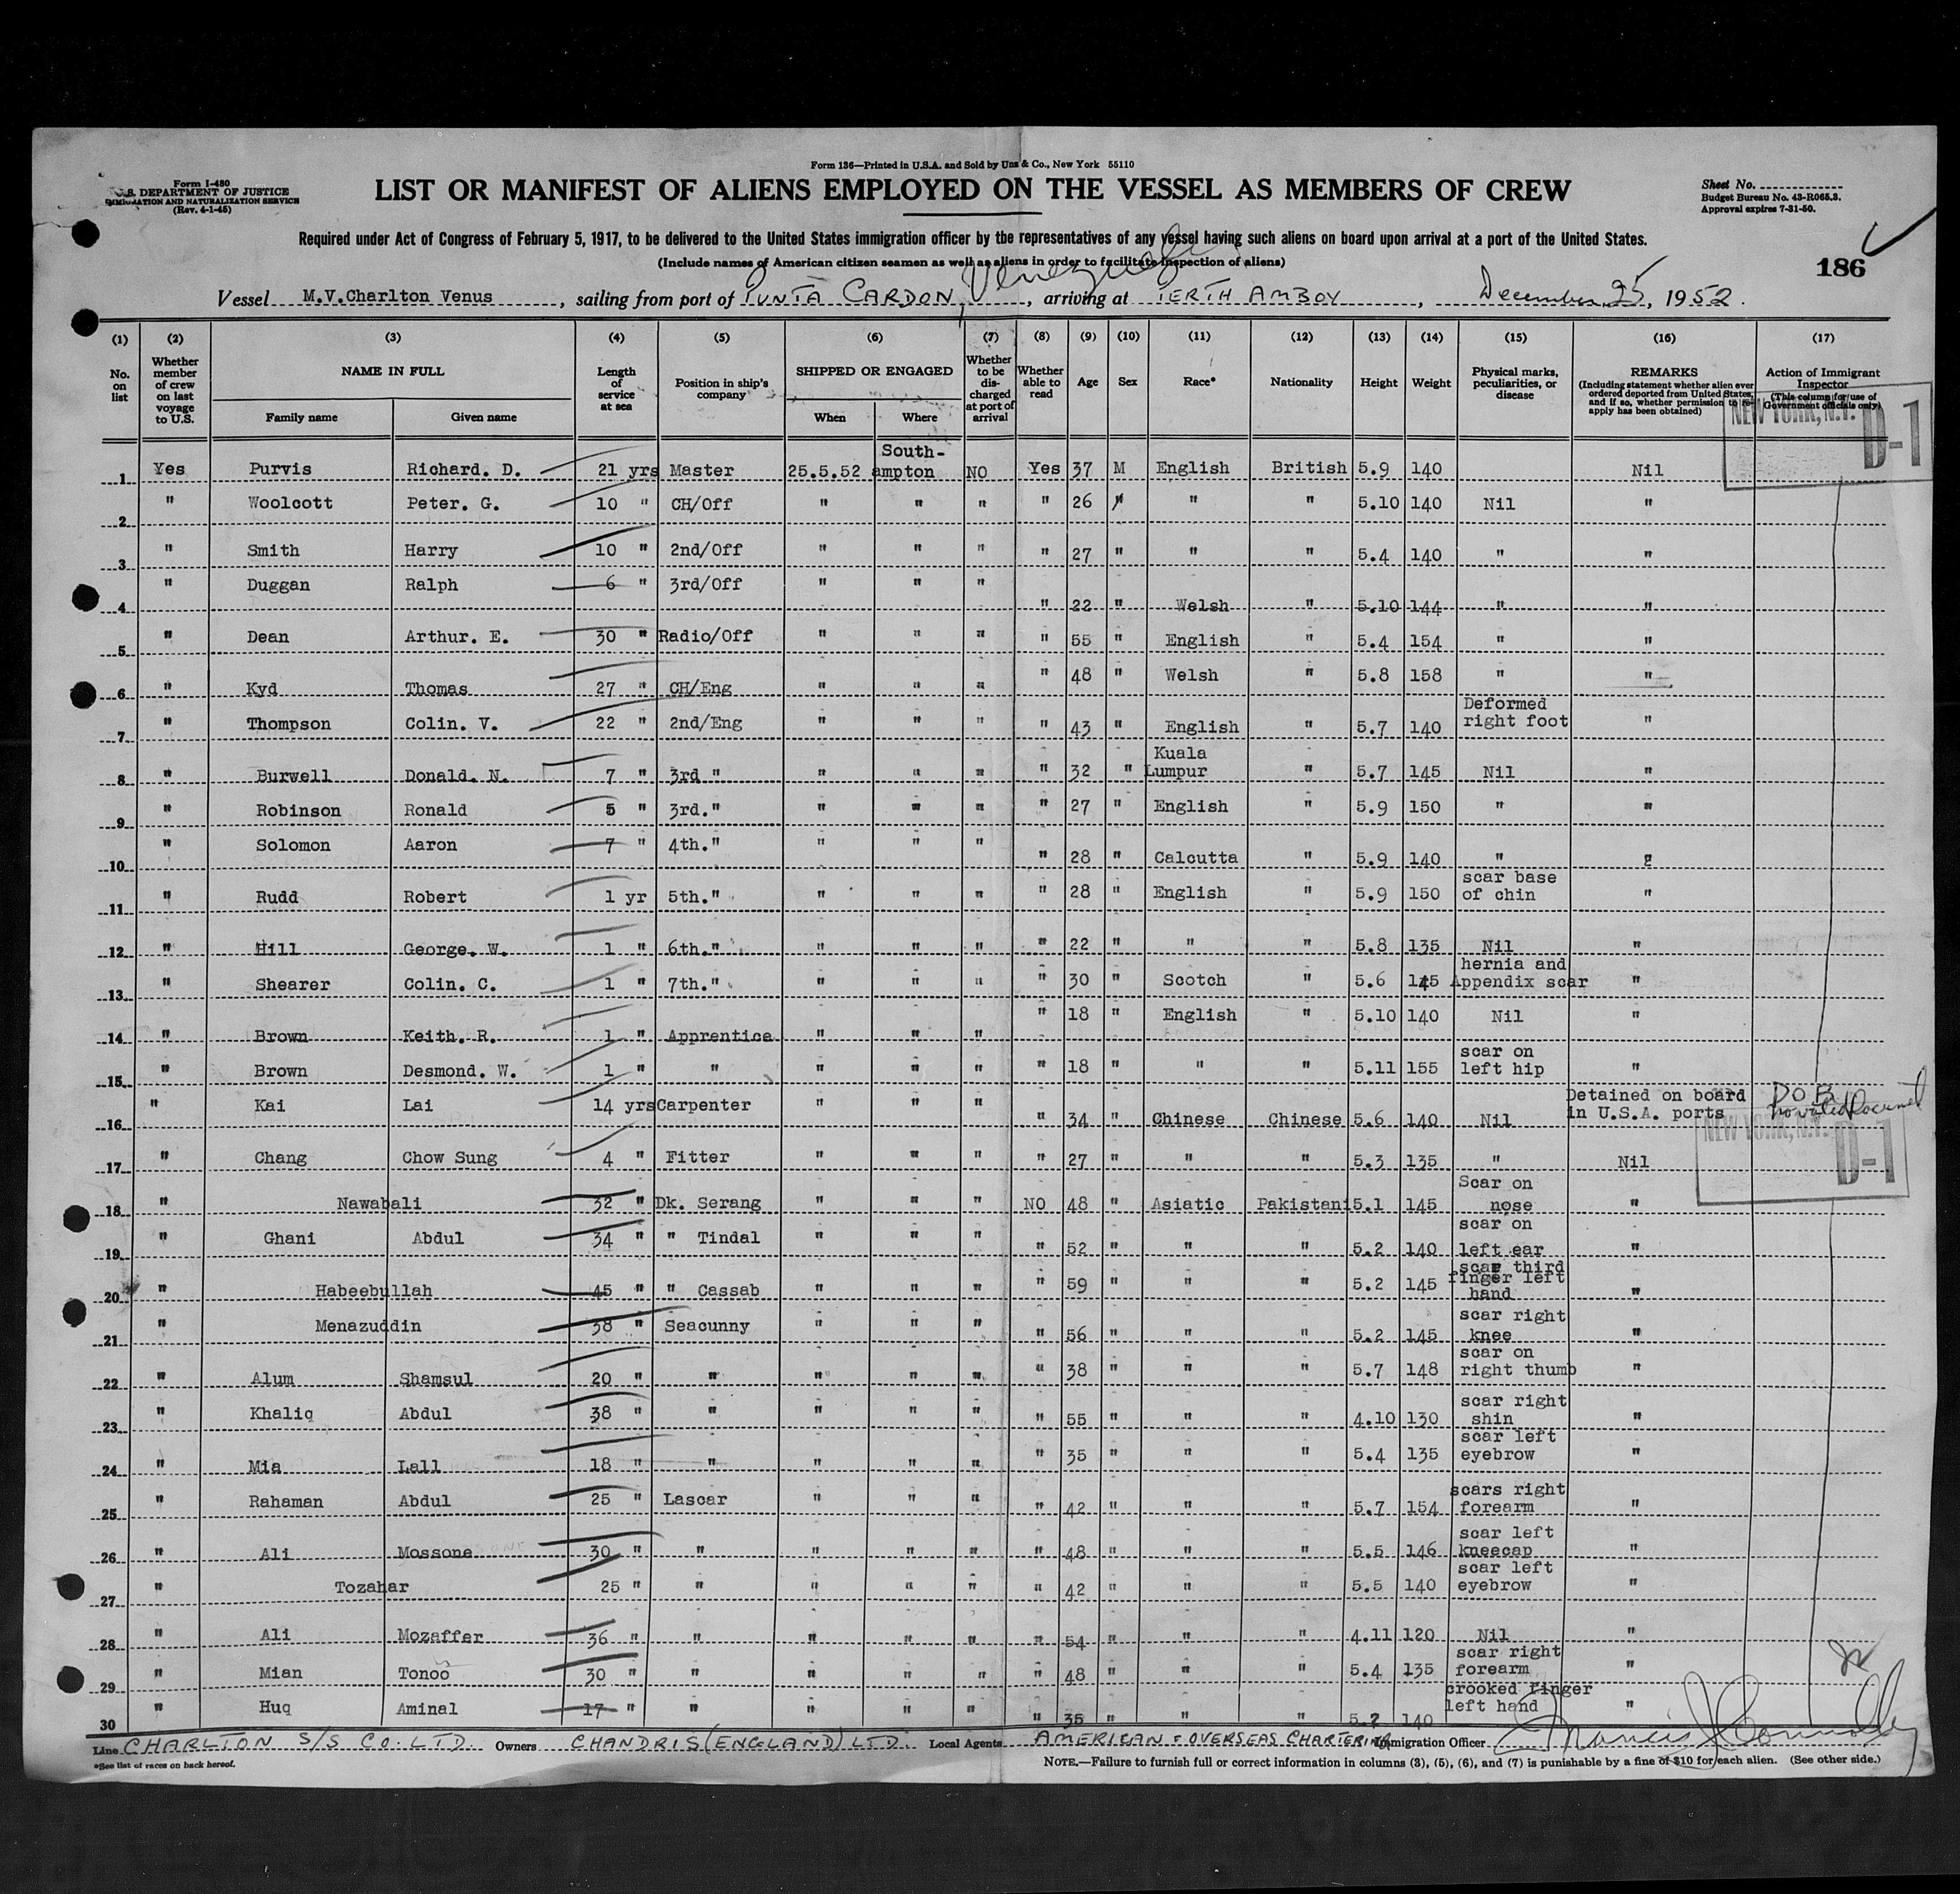 Form 136—Printed in U.S.A. and Sold by Unz & Co., New York 55110
Form I-480
U.S. DEPARTMENT OF JUSTICE
IMMIGRATION AND NATURALIZATION SERVICE
(Rev. 4-1-45)
LIST OR MANIFEST OF ALIENS EMPLOYED ON THE VESSEL AS MEMBERS OF CREW
Sheet No.
Budget Bureau No. 43-R065.3.
Approval expires 7-31-50.
Required under Act of Congress of February 5, 1917, to be delivered to the United States immigration officer by the representatives of any vessel having such aliens on board upon arrival at a port of the United States.
(Include names of American citizen seamen as well as aliens in order to facilitate inspection of aliens)
186
Vessel M.V.Charlton Venus, sailing from port of PUNTA CARDON, Venezuela, arriving at PERTH AMBOY, December 25, 1952.
(1) (2) (3) (4) (5) (6) (7) (8) (9) (10) (11) (12) (13) (14) (15) (16) (17)
No. on list
Whether member of crew on last voyage to U.S.
NAME IN FULL
Family name Given name
Length of service at sea
Position in ship's company
SHIPPED OR ENGAGED
When Where
Whether to be discharged at port of arrival
Whether able to read
Age
Sex
Race*
Nationality
Height
Weight
Physical marks, peculiarities, or disease
REMARKS
(Including statement whether alien ever ordered deported from United States, and if so, whether permission to reapply has been obtained)
Action of Immigrant Inspector
(This column for use of Government officials only)
NEW YORK, N.Y. D-1
1 Yes Purvis Richard. D. 21 yrs Master 25.5.52 South-ampton NO Yes 37 M English British 5.9 140 Nil
2 " Woolcott Peter. G. 10 " CH/Off " " " " 26 " " " 5.10 140 Nil "
3 " Smith Harry 10 " 2nd/Off " " " " 27 " " " 5.4 140 " "
4 " Duggan Ralph 6 " 3rd/Off " " " " 22 " Welsh " 5.10 144 " "
5 " Dean Arthur. E. 30 " Radio/Off " " " " 55 " English " 5.4 154 " "
6 " Kyd Thomas 27 " CH/Eng " " " " 48 " Welsh " 5.8 158 " "
7 " Thompson Colin. V. 22 " 2nd/Eng " " " " 43 " English " 5.7 140 Deformed right foot "
8 " Burwell Donald. N. 7 " 3rd " " " " " 32 " Kuala Lumpur " 5.7 145 Nil "
9 " Robinson Ronald 5 " 3rd." " " " " 27 " English " 5.9 150 " "
10 " Solomon Aaron 7 " 4th." " " " " 28 " Calcutta " 5.9 140 " "
11 " Rudd Robert 1 yr 5th." " " " " 28 " English " 5.9 150 scar base of chin "
12 " Hill George. W. 1 " 6th." " " " " 22 " " " 5.8 135 Nil "
13 " Shearer Colin. C. 1 " 7th." " " " " 30 " Scotch " 5.6 145 hernia and Appendix scar "
14 " Brown Keith. R. 1 " Apprentice " " " " 18 " English " 5.10 140 Nil "
15 " Brown Desmond. W. 1 " " " " " " 18 " " " 5.11 155 scar on left hip "
16 " Kai Lai 14 yrs Carpenter " " " " 34 " Chinese Chinese 5.6 140 Nil Detained on board in U.S.A. ports DOB no valid Document
NEW YORK, N.Y. D-1
17 " Chang Chow Sung 4 " Fitter " " " " 27 " " " 5.3 135 " Nil
18 " Nawabali 32 " Dk. Serang " " " NO 48 " Asiatic Pakistani 5.1 145 Scar on nose "
19 " Ghani Abdul 34 " " Tindal " " " " 52 " " " 5.2 140 scar on left ear "
20 " Habeebullah 45 " " Cassab " " " " 59 " " " 5.2 145 scar third finger left hand "
21 " Menazuddin 38 " Seacunny " " " " 56 " " " 5.2 145 scar right knee "
22 " Alum Shamsul 20 " " " " " " 38 " " " 5.7 148 scar on right thumb "
23 " Khaliq Abdul 38 " " " " " " 55 " " " 4.10 130 scar right shin "
24 " Mia Lall 18 " " " " " " 35 " " " 5.4 135 scar left eyebrow "
25 " Rahaman Abdul 25 " Lascar " " " " 42 " " " 5.7 154 scars right forearm "
26 " Ali Mossone 30 " " " " " " 48 " " " 5.5 146 scar left kneecap "
27 " Tozahar 25 " " " " " " 42 " " " 5.5 140 scar left eyebrow "
28 " Ali Mozaffer 36 " " " " " " 54 " " " 4.11 120 Nil "
29 " Mian Tonoo 30 " " " " " " 48 " " " 5.4 135 scar right forearm "
30 " Huq Aminal 17 " " " " " " 35 " " " 5.2 140 crooked finger left hand "
Line CHARLTON S/S CO. LTD. Owners CHANDRIS (ENGLAND) LTD. Local Agents AMERICAN & OVERSEAS CHARTERING Immigration Officer Francis J Connolly
*See list of races on back hereof.
NOTE.—Failure to furnish full or correct information in columns (3), (5), (6), and (7) is punishable by a fine of $10 for each alien. (See other side.)